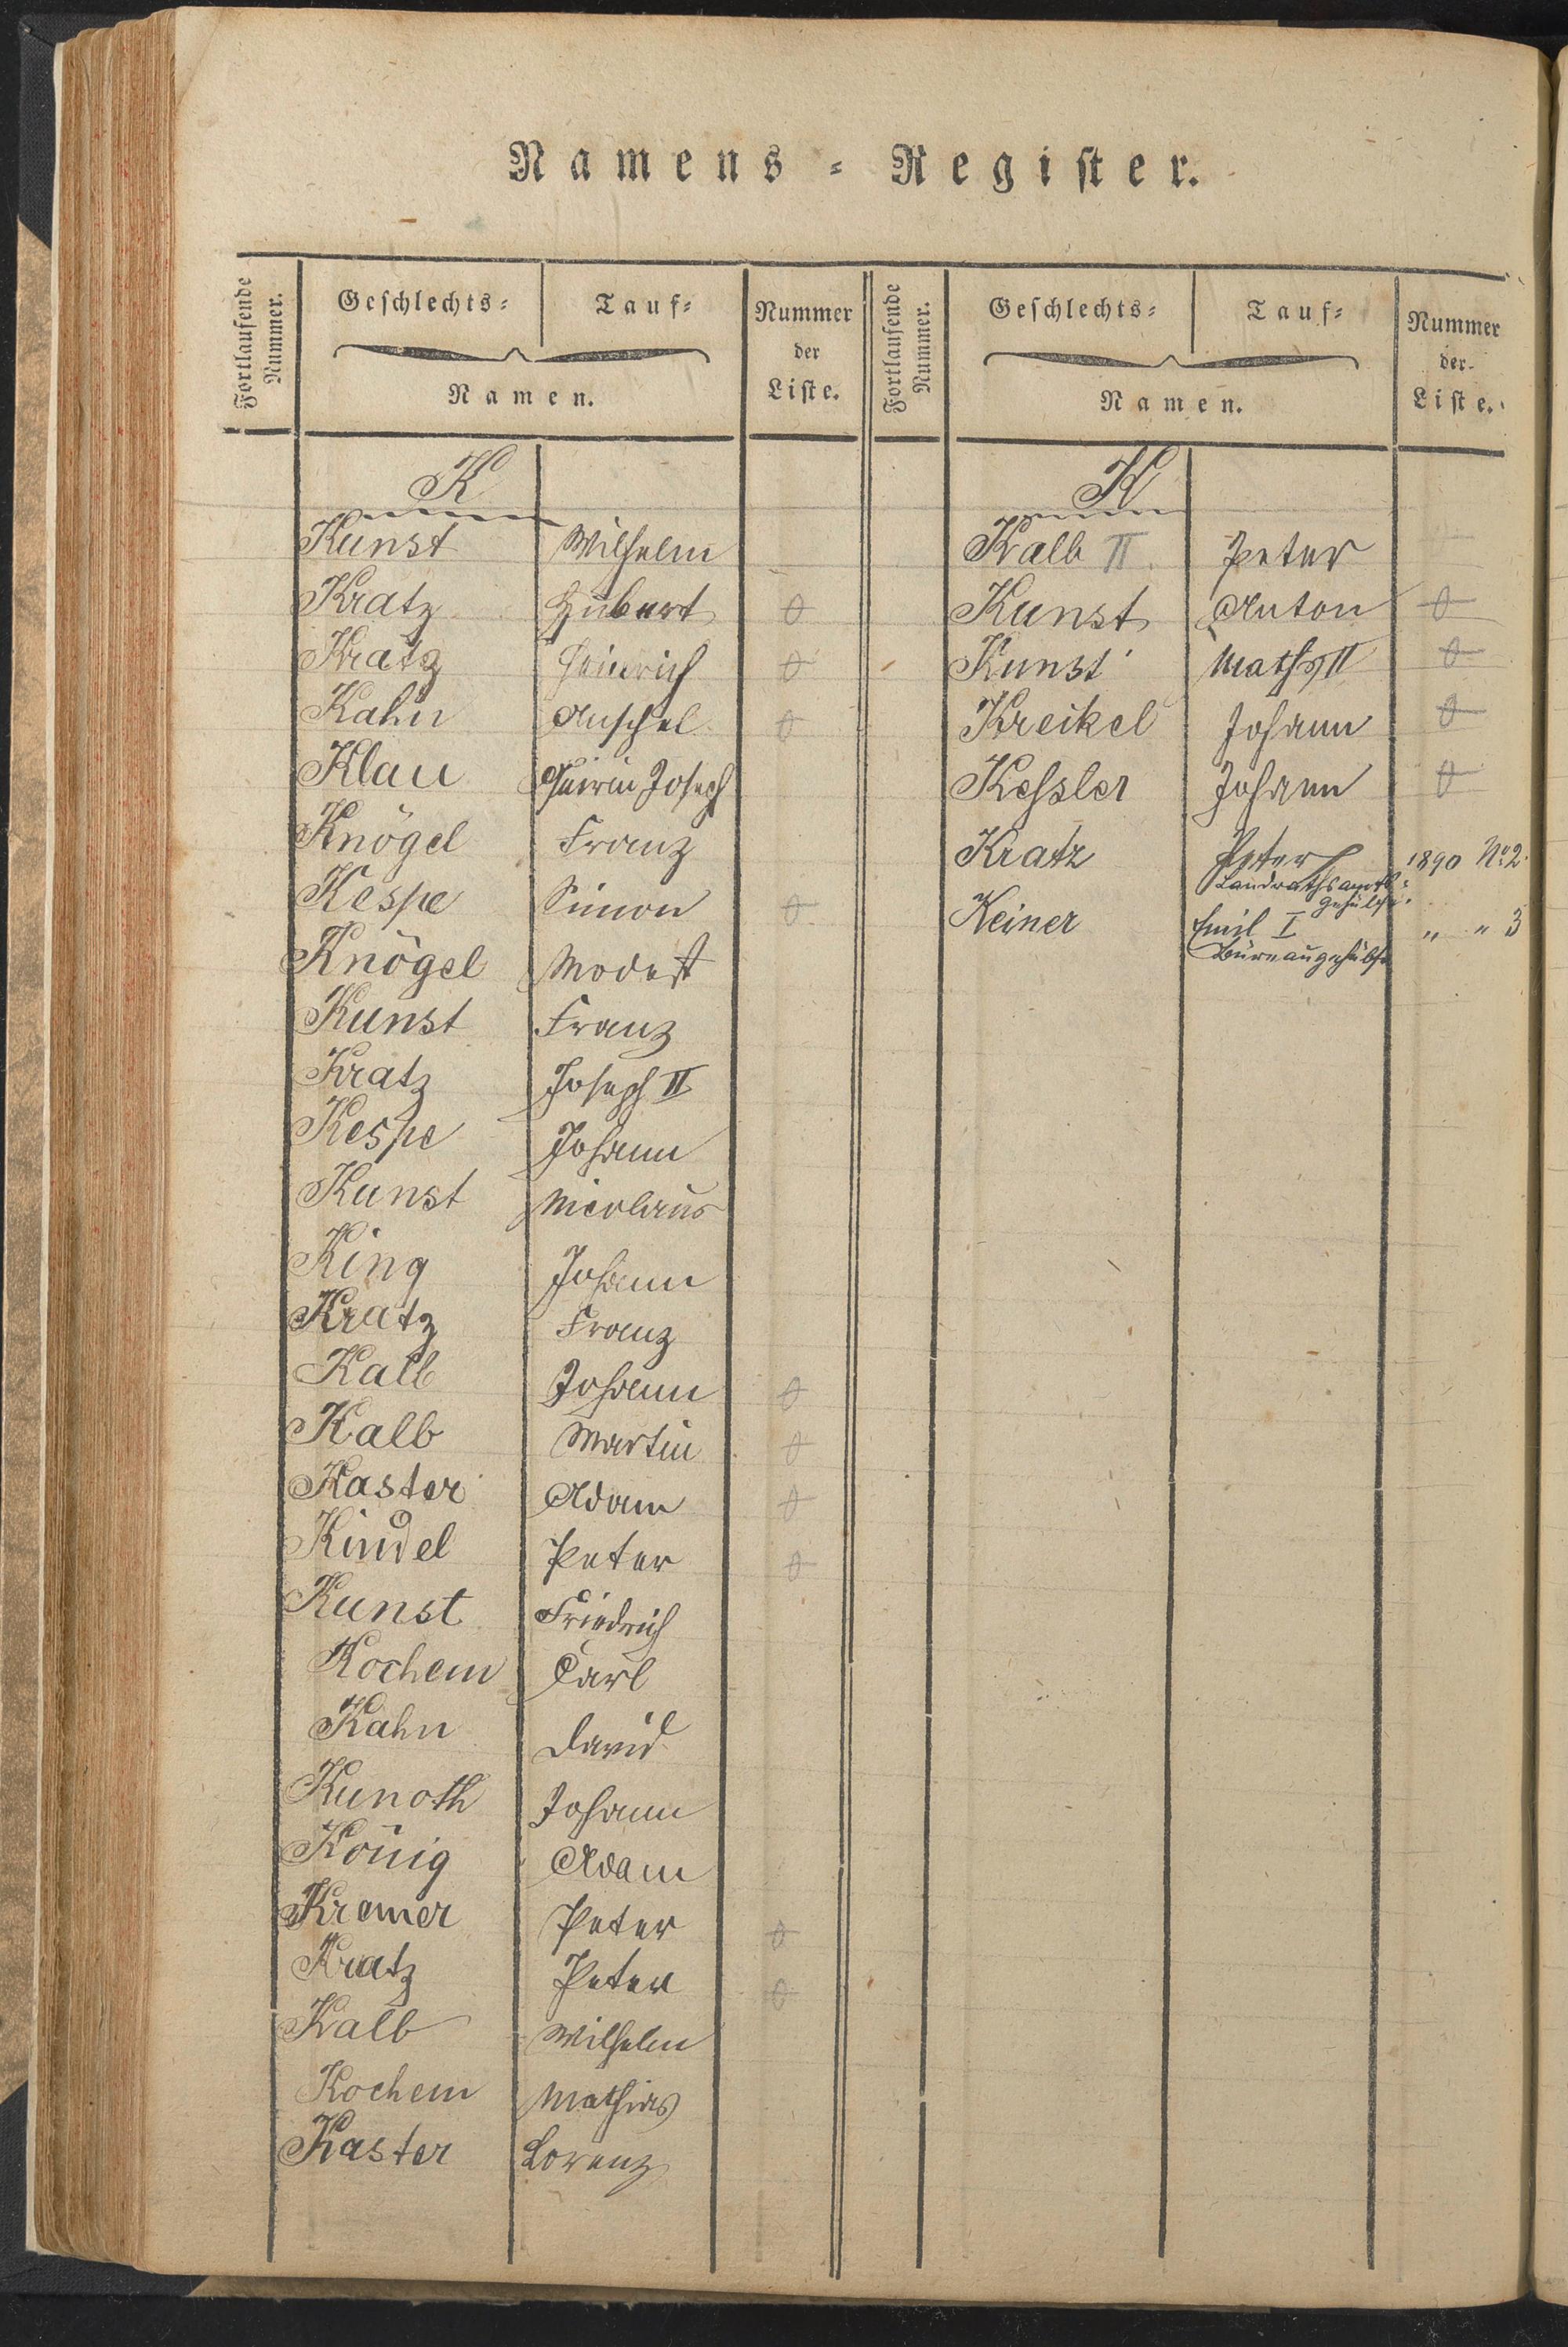 Namens-Regiſter.
Fortlaufende Nummer. Geſchlechts- Tauf- Namen. Nummer der Liſte.
Fortlaufende Nummer. Geſchlechts- Tauf- Namen. Nummer der Liſte.
K
Kunst Wilhelm
Kratz Hubert
Kratz Heinrich
Kahn Anschel
Klau Joseph
Knögel Franz
Kespe Simon
Knögel Modest
Kunst Franz
Kratz Joseph II
Kespe Johann
Kunst Nicolaus
King Johann
Kratz Franz
Kalb Johann
Kalb Martin
Kaster Adam
Kindel Peter
Kunst Friedrich
Kochem Carl
Kahn David
Kunoth Johann
König Adam
Kremer Peter
Kratz Peter
Kalb Wilhelm
Kochem Mathias
Kaster Lorenz
K
Kalb II Peter
Kunst Anton
Kunst Maths II
Kreikel Johann
Keſsler Johann
Kratz Peter 1890 No 2
Landrathsamts-
gehülfe
Keiner Emil I " " 3
Büreaugehülfe